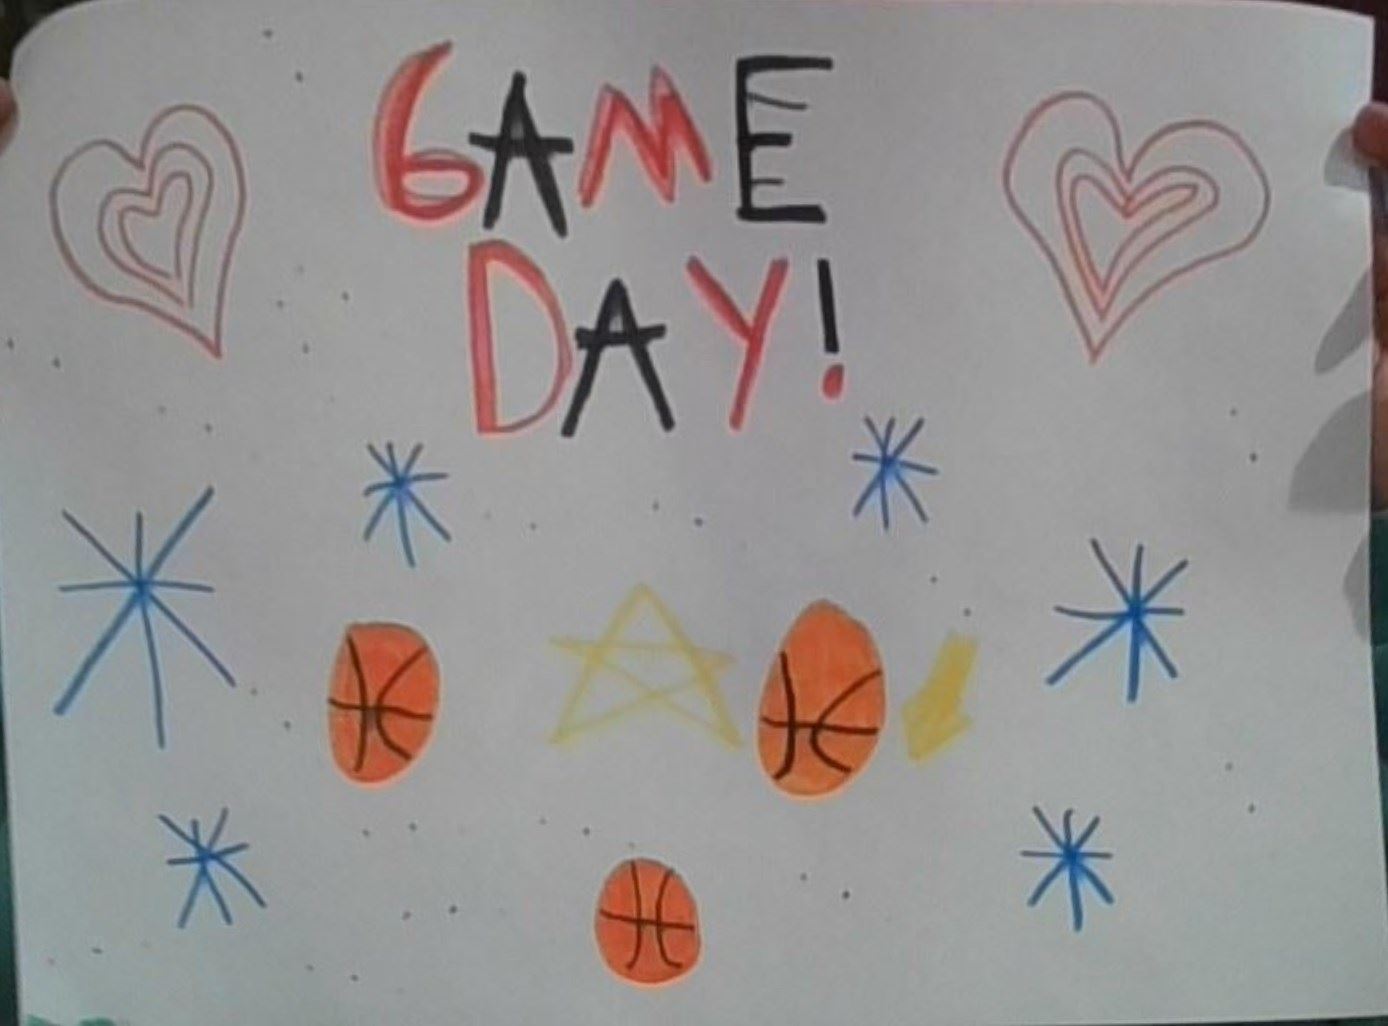 GAME
DAY!